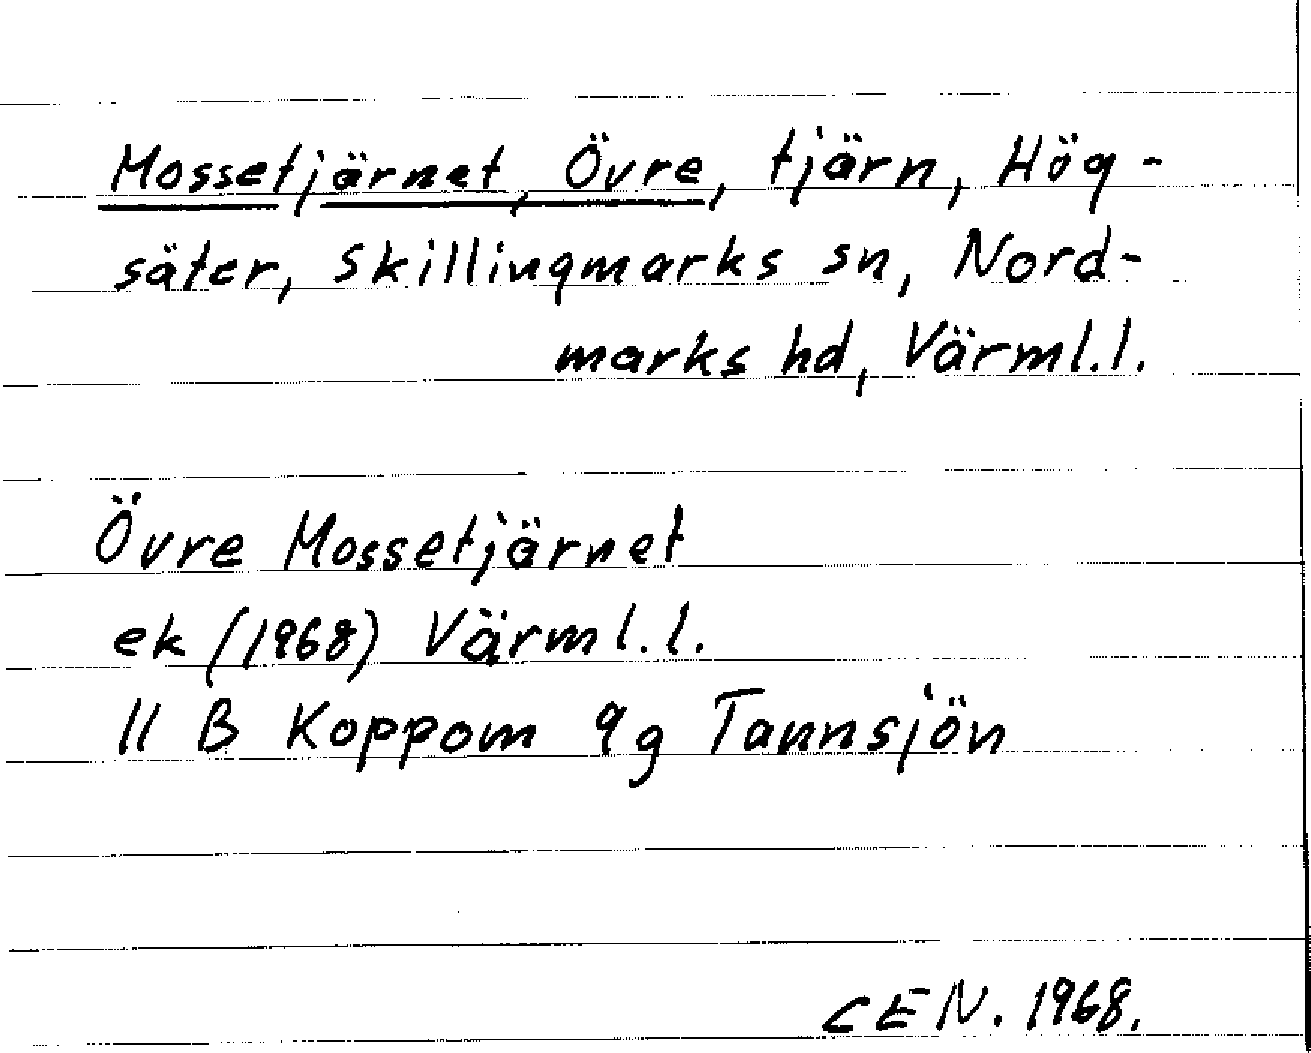 Mossetjärnet, Övre, tjärn, Hög-
säter, Skillingmarks sn, Nord-
marks hd, Värml.l.
Övre Mossetjärnet
ek (1968) Värml.l.
11 B Koppom 9g Tannsjön
CEN. 1968.